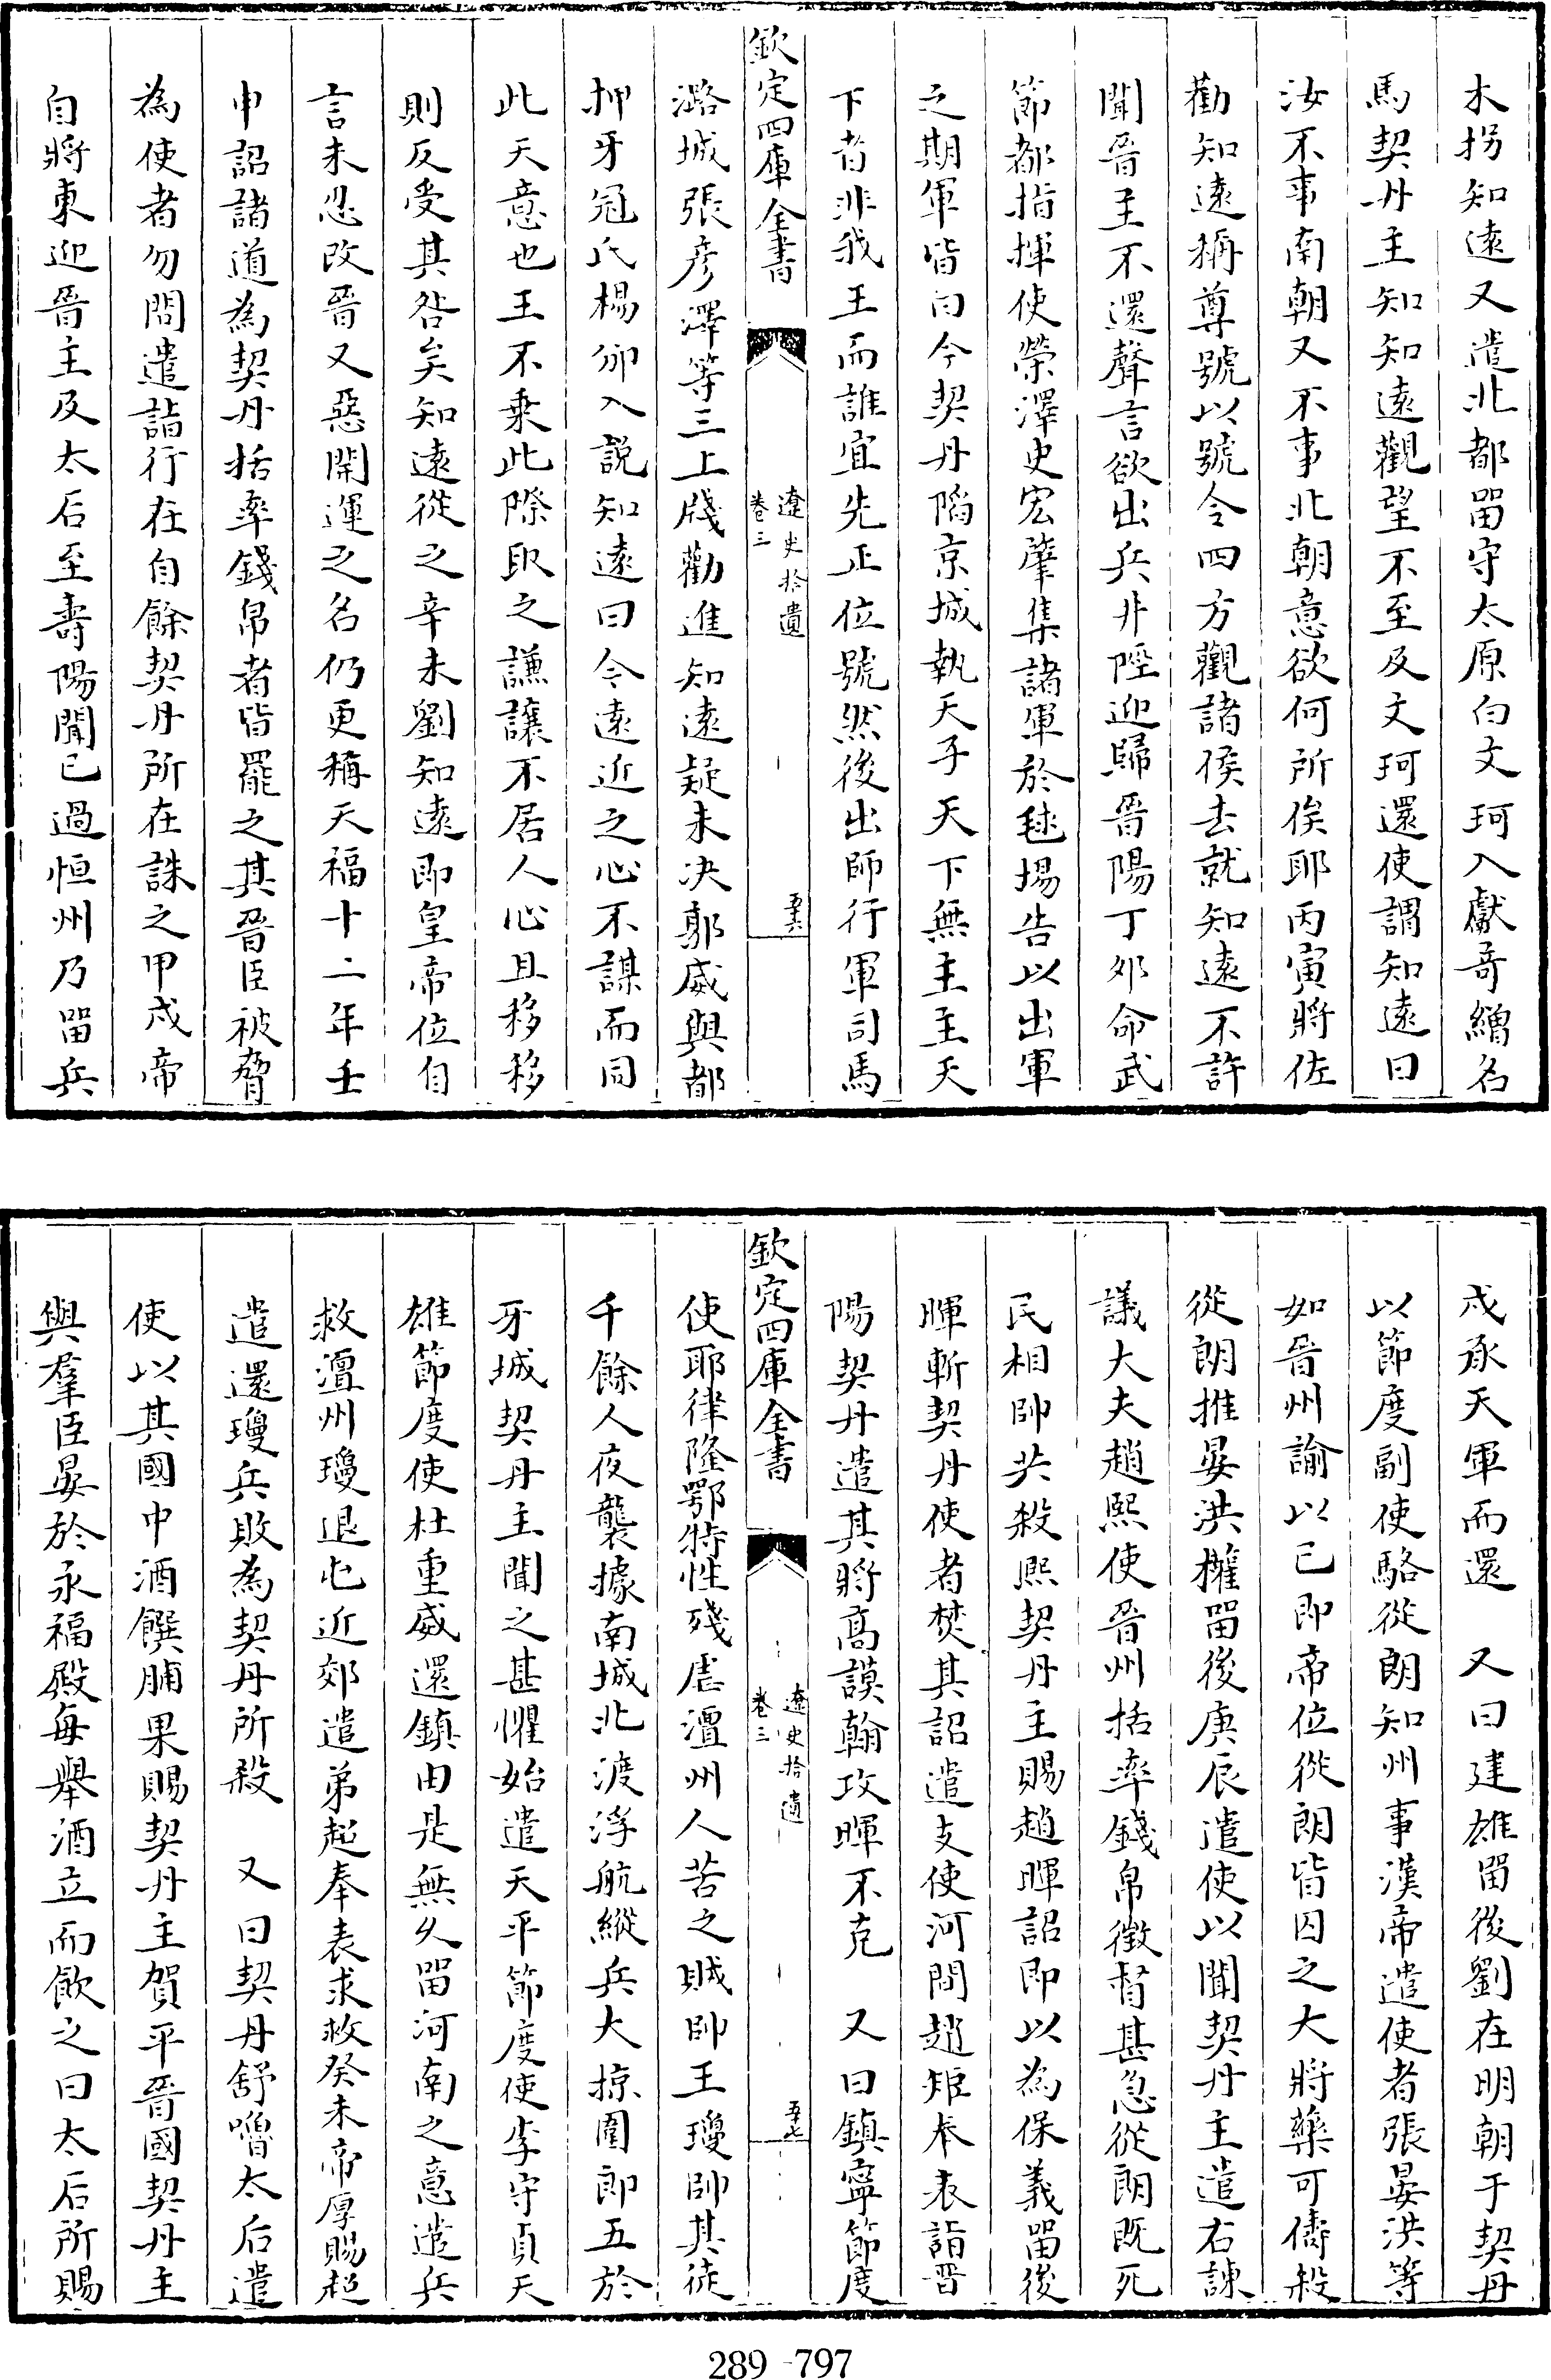 木拐知逺又遣北都留守太原白文珂入獻奇繒名
馬契丹主知知逺觀望不至及文珂還使謂知逺曰
汝不事南朝又不事北朝意欲何所俟耶丙寅將佐
勸知逺稱尊號以號令四方觀諸侯去就知逺不許
聞晉主不還聲言欲出兵井陘迎歸晉陽丁夘命武
節都指揮使榮澤史宏肇集諸軍於毬場告以出軍
之期軍皆曰今契丹陷京城執天子天下無主主天
下者非我王而誰宜先正位號然後出師行軍司馬
欽定四庫全書
遼史拾遺
卷三
五十六
潞城張彦澤等三上牋勸進知逺疑未決郭威與都
押牙冠氏楊邠入說知逺曰今逺近之心不謀而同
此天意也王不乘此際取之謙讓不居人心且移移
則反受其咎矣知逺從之辛未劉知逺即皇帝位自
言未忍改晉又惡開運之名仍更稱天福十二年壬
申詔諸道為契丹括率錢帛者皆罷之其晉臣被脅
為使者勿問遣詣行在自餘契丹所在誅之甲戍帝
自將東迎晉主及太后至壽陽聞已過恒州乃留兵
戍承天軍而還 又曰建雄留後劉在明朝于契丹
以節度副使駱從朗知州事漢帝遣使者張晏洪等
如晉州諭以已即帝位從朗皆囚之大將藥可儔殺
從朗推晏洪權留後庚辰遣使以聞契丹主遣右諫
議大夫趙熙使晉州括率錢帛徵督甚急從朗既死
民相帥共殺熙契丹主賜趙暉詔即以為保義留後
暉斬契丹使者焚其詔遣支使河間趙矩奉表詣晉
陽契丹遣其將高謨翰攻暉不克 又曰鎮寧節度
欽定四庫全書
遼史拾遺
卷三
五十七
使耶律隆鄂特性殘虐澶州人苦之賊帥王瓊帥其徒
千餘人夜襲據南城北渡浮航縱兵大掠圍郎五於
牙城契丹主聞之甚懼始遣天平節度使李守貞天
雄節度使杜重威還鎮由是無久留河南之意遣兵
救澶州瓊退屯近郊遣弟超奉表求救癸未帝厚賜超
遣還瓊兵敗為契丹所殺 又曰契丹舒嚕太后遣
使以其國中酒饌脯果賜契丹主賀平晉國契丹主
與羣臣晏於永福殿每舉酒立而飲之曰太后所賜
289-797